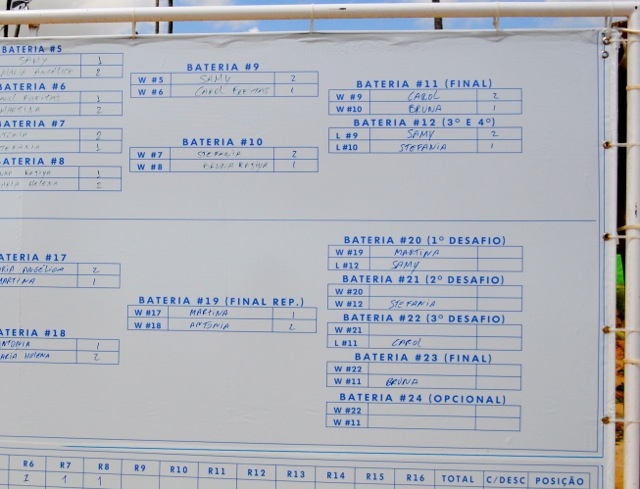 BATERIA #5
SAMY 1
2
BATERIA #6
1
MARTINA 2
BATERIA #7
2
1
BATERIA #8
1
MARIA HELENA 2
BATERIA #9
W #5 SAMY 2
W #6 CAROL FREITAS 1
BATERIA #10
W #7 STEFANIA 2
W #8 BRUNA 1
BATERIA #11 (FINAL)
W #9 CAROL 2
W #10 BRUNA 1
BATERIA #12 (3º E 4º)
L #9 SAMY 2
L #10 STEFANIA 1
BATERIA #17
ARIA ANGÉLICA 2
MARTINA 1
BATERIA #18
NTONIA 1
ARIA HELENA 2
BATERIA #19 (FINAL REP.)
W #17 MARTINA 1
W #18 ANTONIA 2
BATERIA #20 (1º DESAFIO)
W #19 MARTINA
L #12 SAMY
BATERIA #21 (2º DESAFIO)
W #20
W #12 STEFANIA
BATERIA #22 (3º DESAFIO)
W #21
L #11 CAROL
BATERIA #23 (FINAL)
W #22
W #11 BRUNA
BATERIA #24 (OPCIONAL)
W #22
W #11
R6 R7 R8 R9 R10 R11 R12 R13 R14 R15 R16 TOTAL C/DESC POSIÇÃO
1 1 1